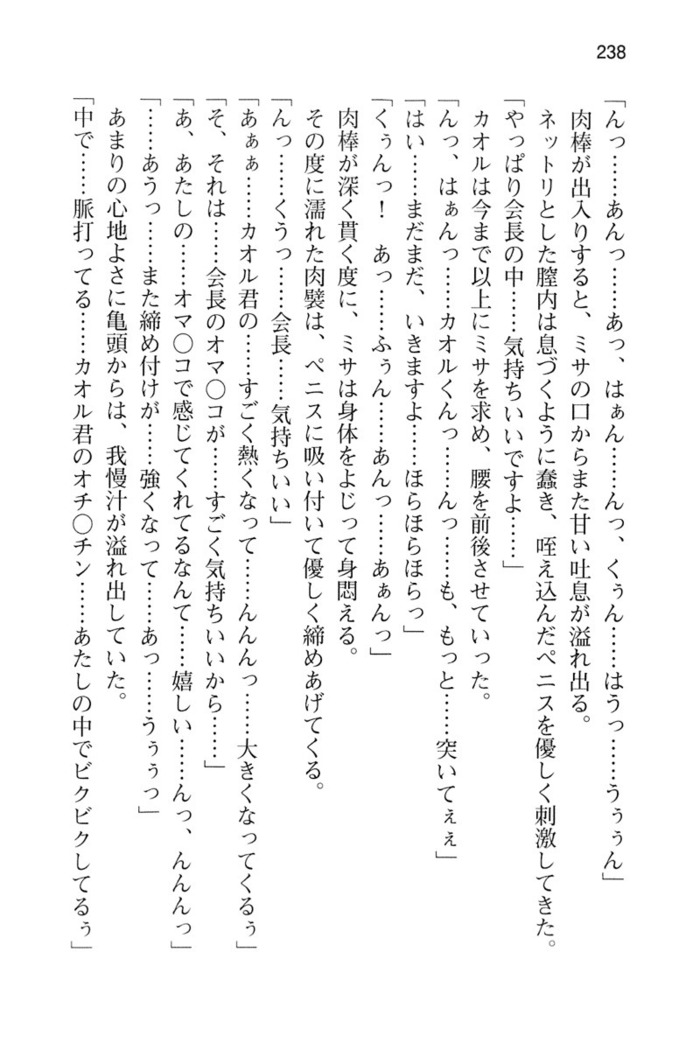 238
「んっ……あんっ……あっ、はぁん……んっ、くぅん……はうっ……うぅぅん」
肉棒が出入りすると、ミサの口からまた甘い吐息が溢れ出る。
ネットリとした膣内は息づくように蠢き、咥え込んだペニスを優しく刺激してきた。
「やっぱり会長の中……気持ちいいですよ……」
カオルは今まで以上にミサを求め、腰を前後させていった。
「んっ、はぁんっ……カオルくんっ……んっ……も、もっと……突いてぇぇ」
「はい……まだまだ、いきますよ……ほらほらほらっ」
「くぅんっ！　あっ……ふぅん……あんっ……あぁんっ」
肉棒が深く貫く度に、ミサは身体をよじって身悶える。
その度に濡れた肉襞は、ペニスに吸い付いて優しく締めあげてくる。
「んっ……くうっ……会長……気持ちいい」
「あぁぁ……カオル君の……すごく熱くなって……んんんっ……大きくなってくるぅ」
「そ、それは……会長のオマ〇コが……すごく気持ちいいから……」
「あ、あたしの……オマ〇コで感じてくれてるなんて……嬉しい……んっ、んんんっ」
「……あうっ……また締め付けが……強くなって……あっ……うぅぅっ」
あまりの心地よさに亀頭からは、我慢汁が溢れ出していた。
「中で……脈打ってる……カオル君のオチ〇チン……あたしの中でビクビクしてるぅ」